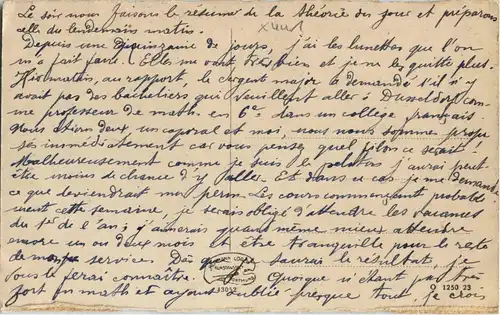 Le soir nous faisons le résumé de la théorie du jour et préparons
celle du lendemain matin.
Depuis une quinzaine de jours, j'ai les lunettes que l'on
m'a fait faire. Elles me vont très bien et je ne les quitte plus.
Hier matin, au rapport, le sergent major a demandé s'il n'y
avait pas des bacheliers qui veuillent aller à Dusseldorf com-
me professeur de math. en 6e dans un collège français.
Nous étions deux, un caporal et moi, nous nous sommes propo-
sés immédiatement car vous pensez quel filon ce serait!
Malheureusement comme je suis le peloton j'aurai peut
être moins de chance d'y aller. Et dans ce cas je me demande
ce que deviendrait ma perm. Les cours commençant probable
ment cette semaine, je serais obligé d'attendre les vacances
du 1er de l'an; j'aimerais quand même mieux attendre
encore un ou deux mois et être tranquille pour le reste
de mon service. Dès que je saurai le résultat, je
vous le ferai connaître. Quoique n'étant pas très
fort en math et ayant oublié presque tout, je crois
O 1250 23